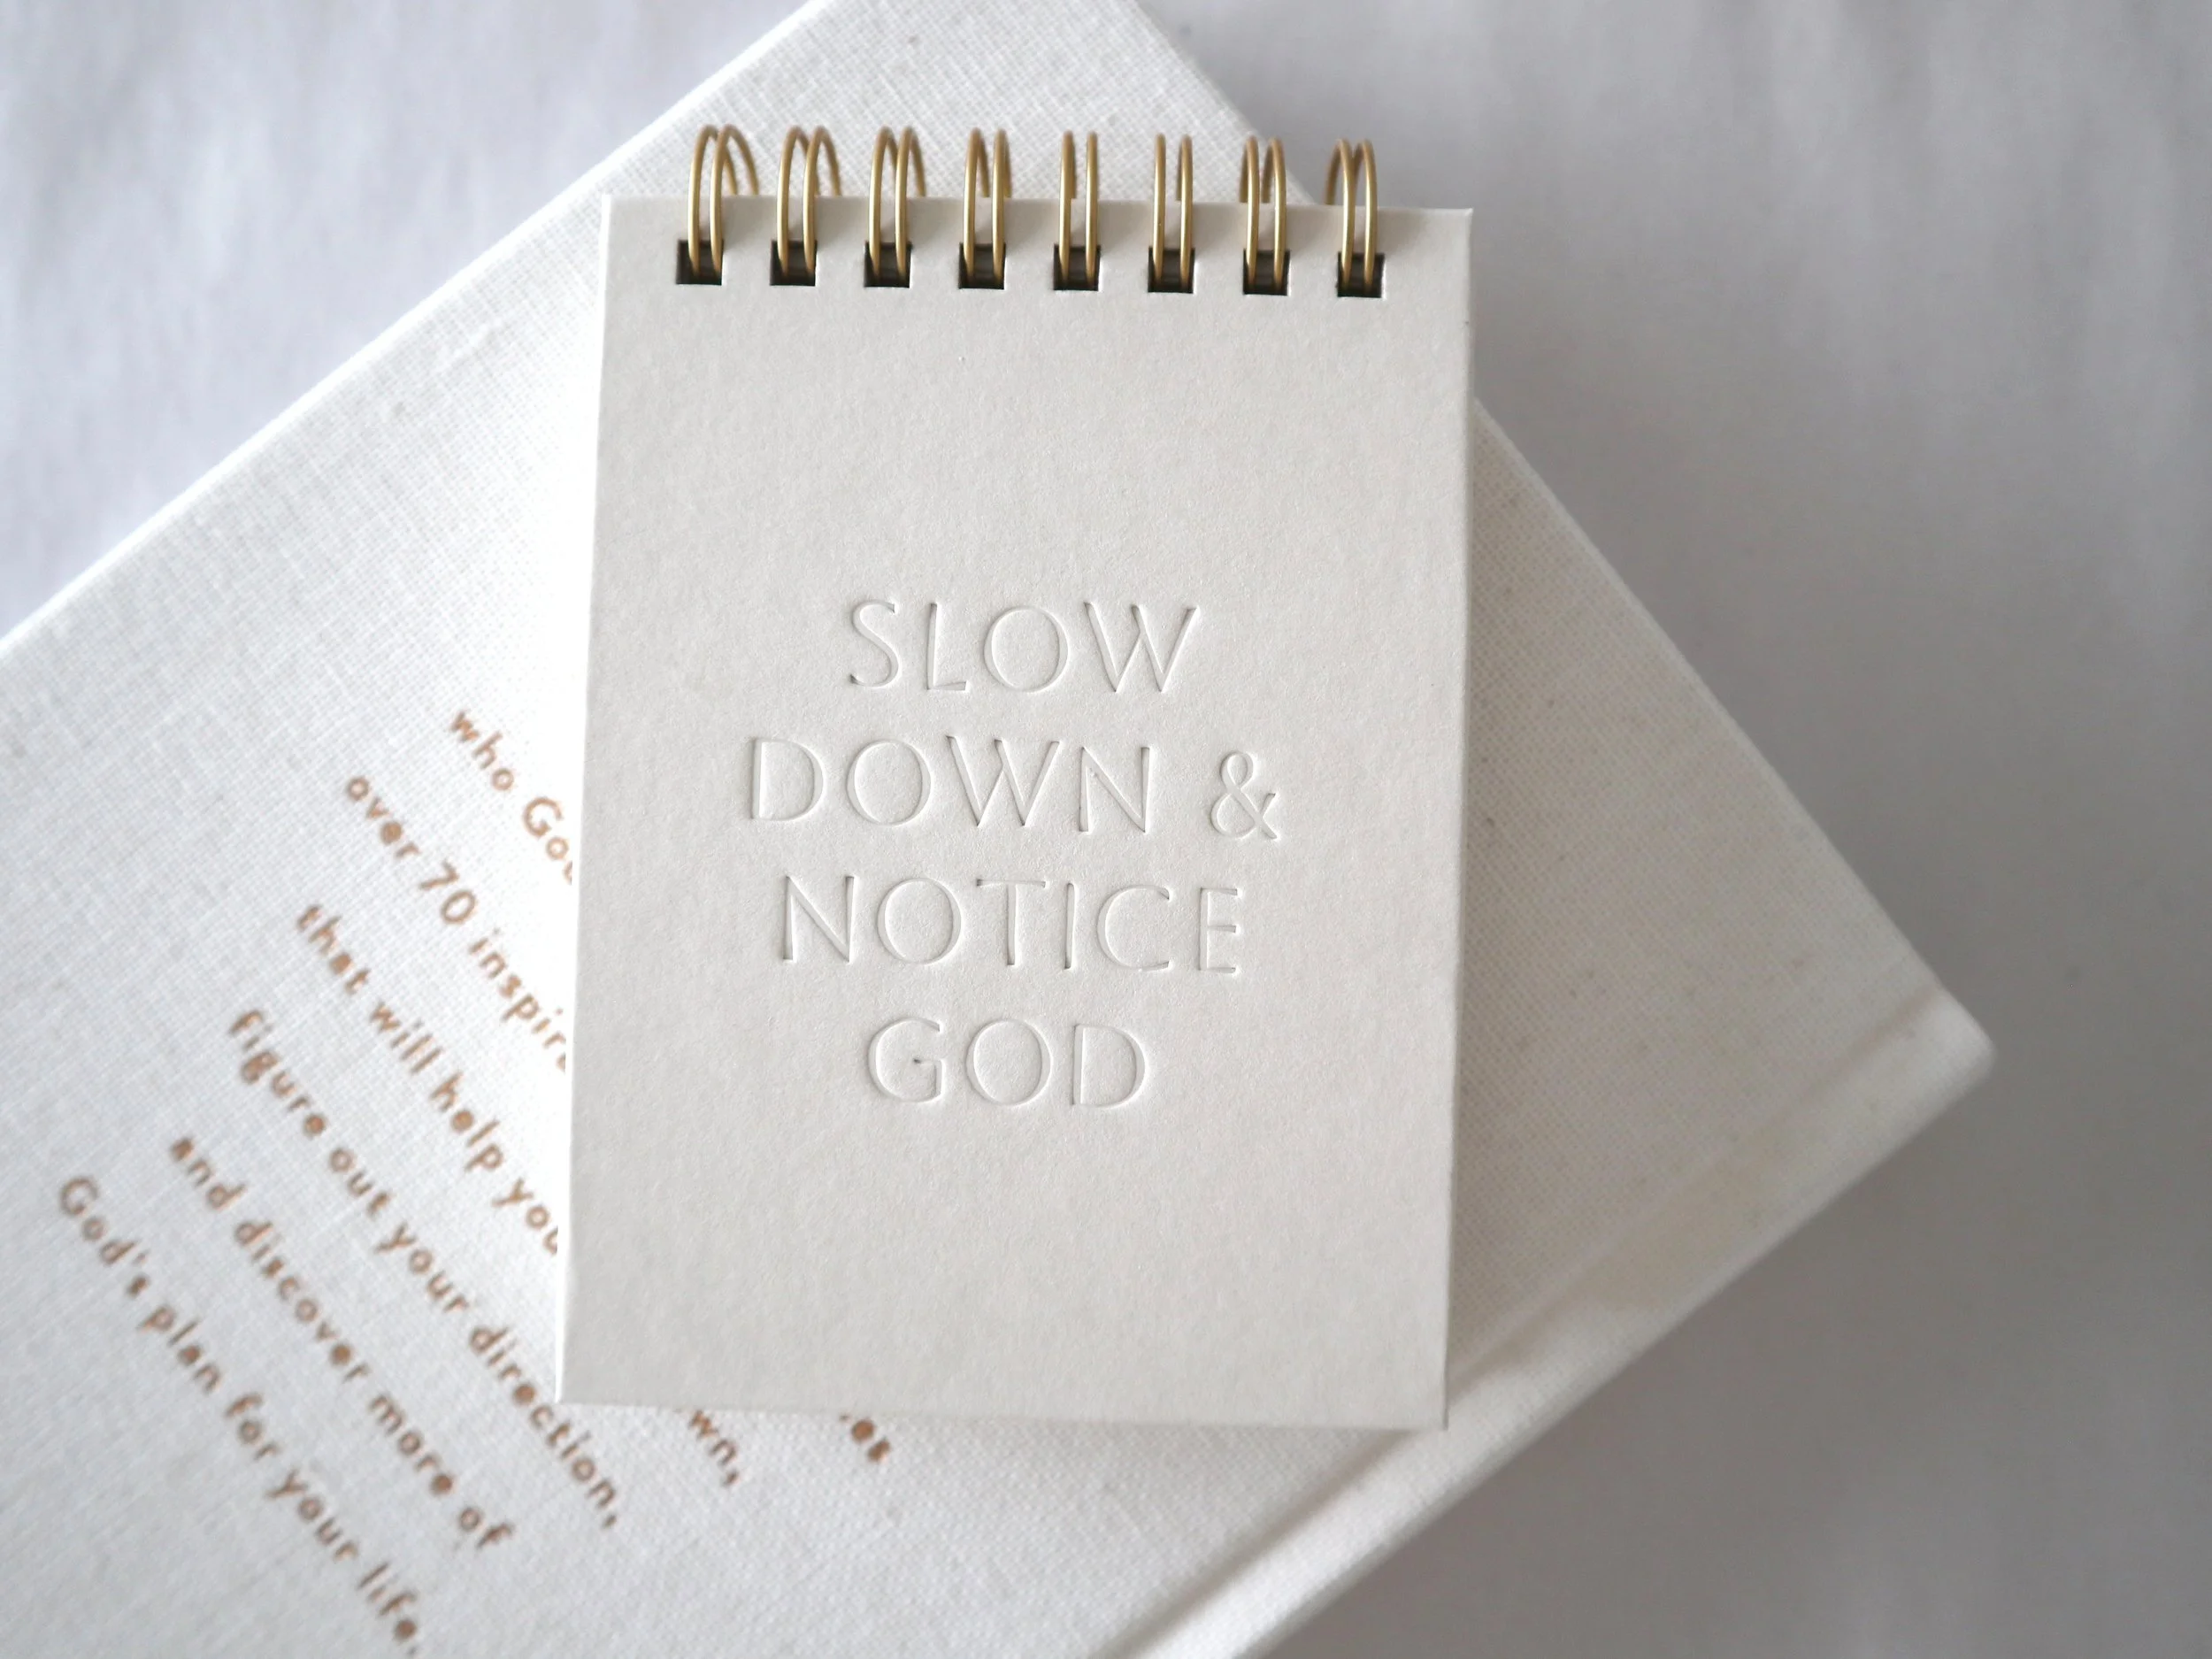 SLOW
DOWN &
NOTICE
GOD
who
over 70
wn,
that will help you
figure out your direction,
and discover more of
God's plan for your life.